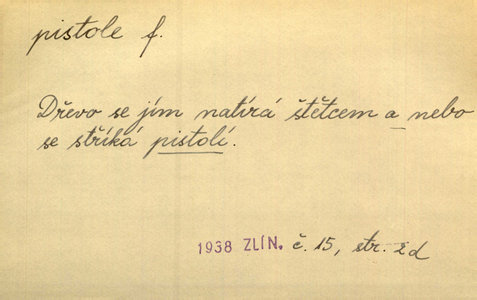 pistole f.
Dřevo se jím natírá štětcem a nebo
se stříká pistolí.
1938 ZLÍN. č. 15, str. 2d